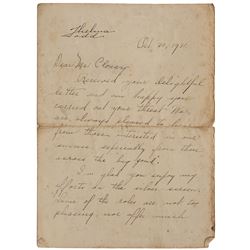 Thelma
Todd
Oct. 20, 19
Dear Mr. Clossy,
Received your delightful
letter and am happy you
carried out your threat. We
are always pleased to hear
from those interested in our
especially from those
across the big pond.
I'm glad you enjoy my
efforts on the silver screen.
Some of the roles are not too
pleasing, nor offer much